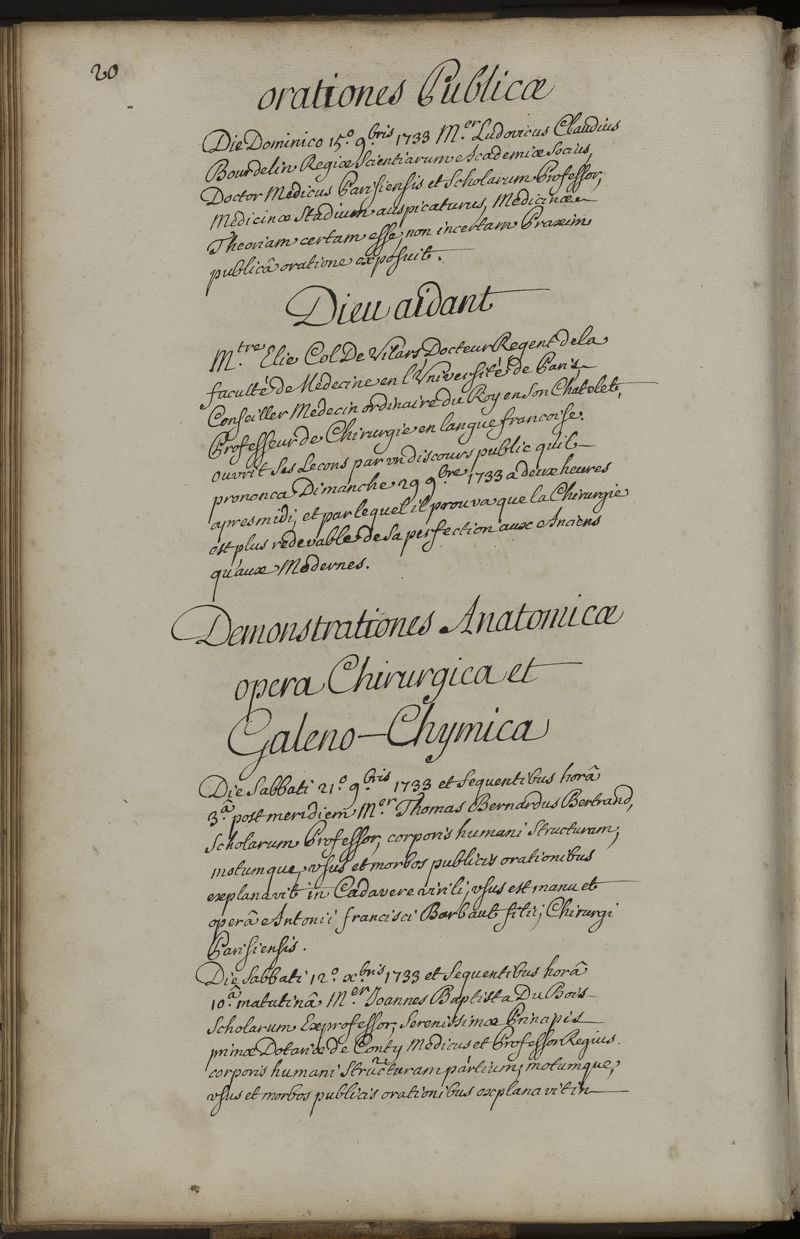 20
orationes Publicæ
Die Dominico 15.º 9.bris 1733 M.er Ludovicus Claudius
Bourdelin Regiæ Scientiarum Academiæ Socius,
Doctor Medicus Parisiensis et Scholarum Professor,
Medicinæ Studium auspicaturus, Medicinæ
Theoriam certam esse, non incertam Praxim
publicâ oratione exposuit.
Dieu aidant
M.tre Elie Col De Vilars Docteur Regent de la
faculté de Medecine en l'Université de Paris
Conseiller Medecin ordinaire du Roy en Son Chatelet,
Professeur de Chirurgie en langue francoise.
ouvrit Ses Lecons par un discours public quil
prononca Dimanche 29 9.bre 1733 a deux heures
apres midi, et par lequel il prouva que la Chirurgie
est plus redevable de Sa perfection aux Anciens
qu'aux Modernes.
Demonstrationes Anatomicæ
opera Chirurgica et
Galeno-Chymica
Die Sabbati 21.º 9.bris 1733 et Sequentibus horâ
3.â post meridiem M.er Thomas Bernardus Bertrand,
Scholarum Professor, corporis humani Structuram,
motumque, usus et morbos publicis orationibus
explanavit in Cadavere virili, usus est manu et
operâ Antonii francisci Barbaut filii, Chirurgi
Parisiensis.
Die Sabbati 12.º x.bris 1733 et Sequentibus horâ
10.â matutinâ M.er Joannes Baptista Du Bois
Scholarum Exprofessor, Serenissimæ Principis
primæ Dotariæ de Conty Medicus et Professor Regius.
corporis humani Structuram partium, motumque,
usus et morbos publicis orationibus explanavit in